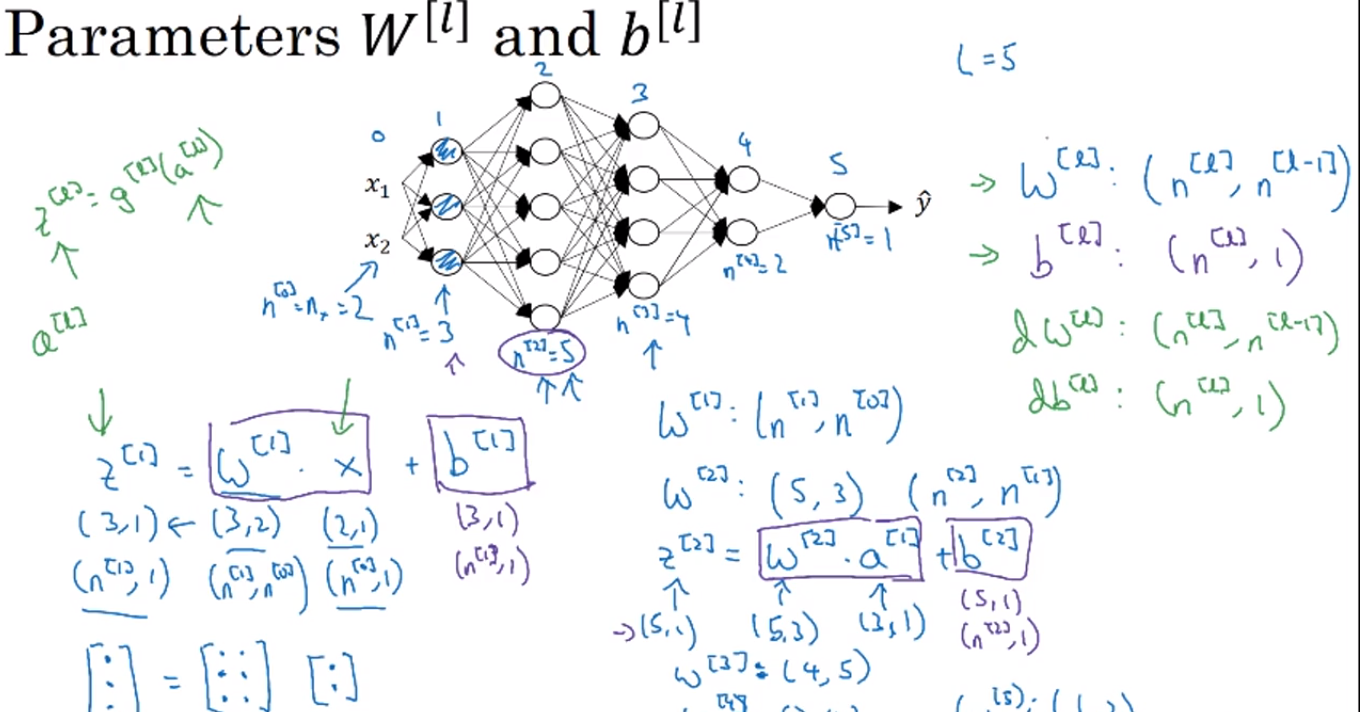 Parameters W^[l] and b^[l]
L = 5
0
1
2
3
4
5
x₁
x₂
ŷ
z^[l] = g^[l](a^[l])
a^[l]
n^[0] = n_x = 2
n^[1] = 3
n^[2] = 5
n^[3] = 4
n^[4] = 2
n^[5] = 1
→ W^[l] : (n^[l], n^[l-1])
→ b^[l] : (n^[l], 1)
dW^[l] : (n^[l], n^[l-1])
db^[l] : (n^[l], 1)
z^[1] = W^[1] · x + b^[1]
(3,1) ← (3,2) (2,1) (3,1)
(n^[1], 1) (n^[1], n^[0]) (n^[0], 1) (n^[1], 1)
W^[1] : (n^[1], n^[0])
W^[2] : (5, 3) (n^[2], n^[1])
z^[2] = W^[2] · a^[1] + b^[2]
→ (5,1) (5,3) (3,1) (5,1)
(n^[2], 1)
W^[3] : (4, 5)